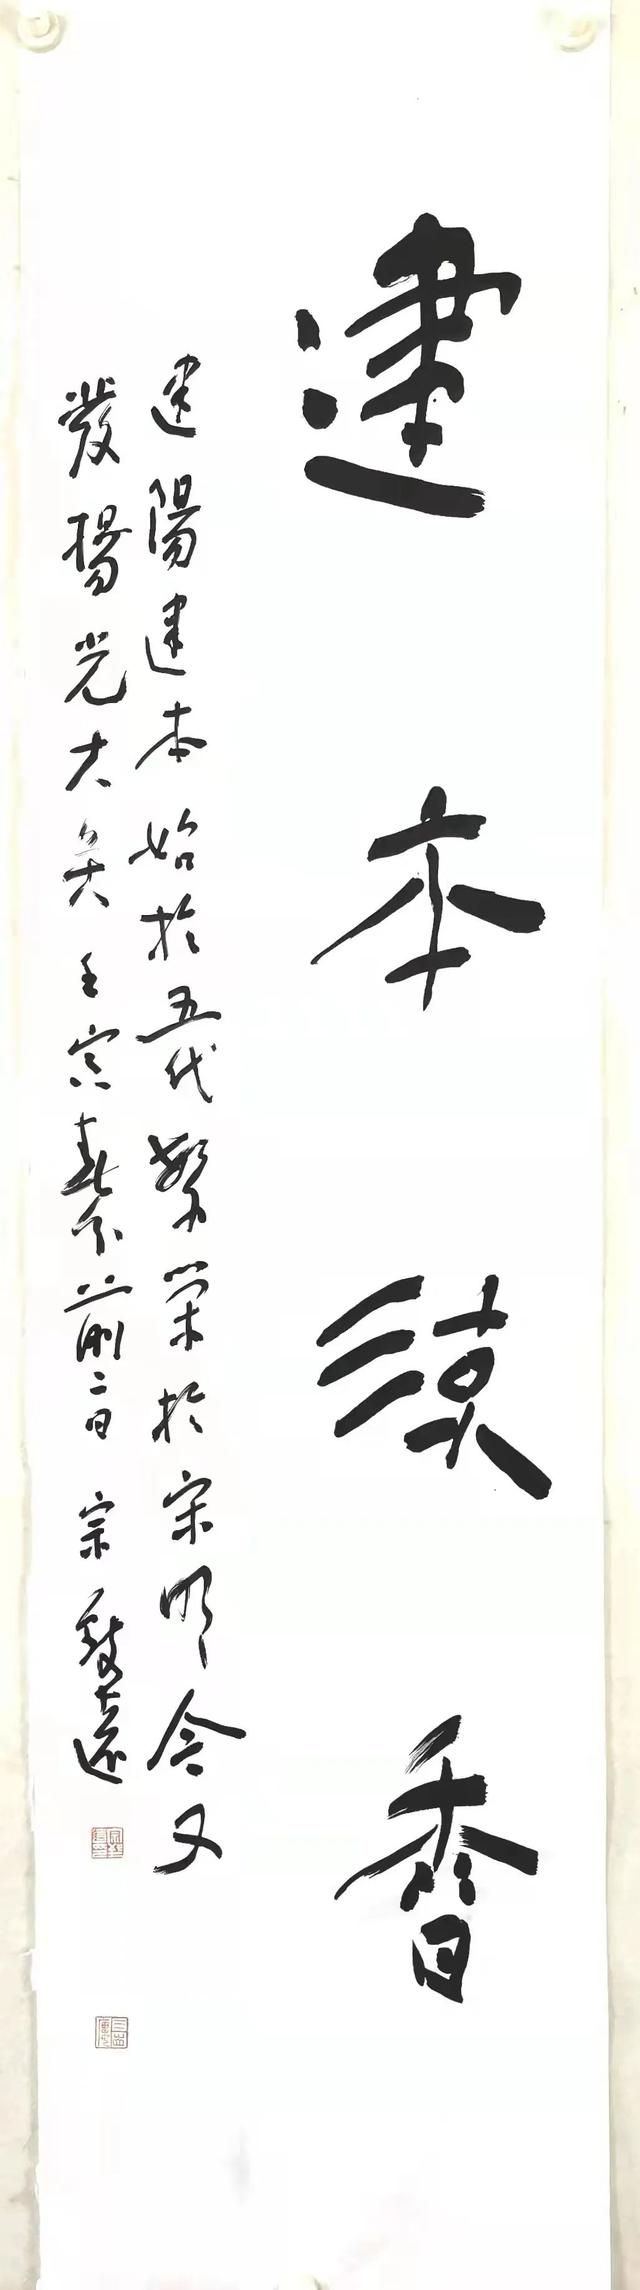 建本续香
建陽建本始於五代繁荣於宋明今又
發揚光大矣壬寅春分前二日宗